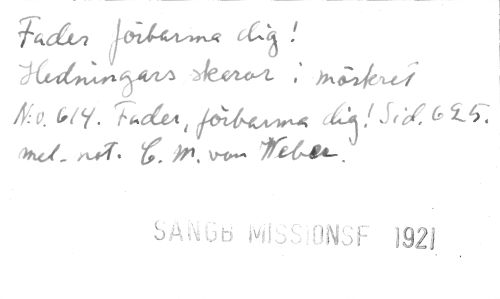 Fader förbarma dig!
Hedningars skaror i mörkret
N:o. 614. Fader, förbarma dig! Sid. 625.
mel. not. C. M. von Weber.
SANGB MISSIONSF 1921